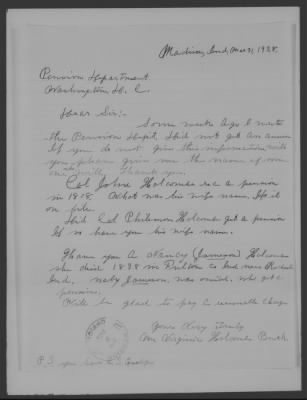 Madison, Ind, Mar 21, 1928.
Pension Department
Washington D. C.
Dear Sir:-
Some weeks ago I wrote
the Pension Dept. Did not get an answer
If you do not give this information will
you please give me the name of some
one who will. Thank you.
Col John Holcombe rec a pension
in 1818. What was his wifes name. If it
on file.
Did Col Philemon Holcombe get a pension
If so have you his wifes name.
Have you a Nancy (Jameson) Holcombe
she died 1838 in
Ind. Jameson, was who got a
pension.
Will be glad to pay a reasonable charge
Yours Very Truly
Mrs Virginia Holcombe
P. S.